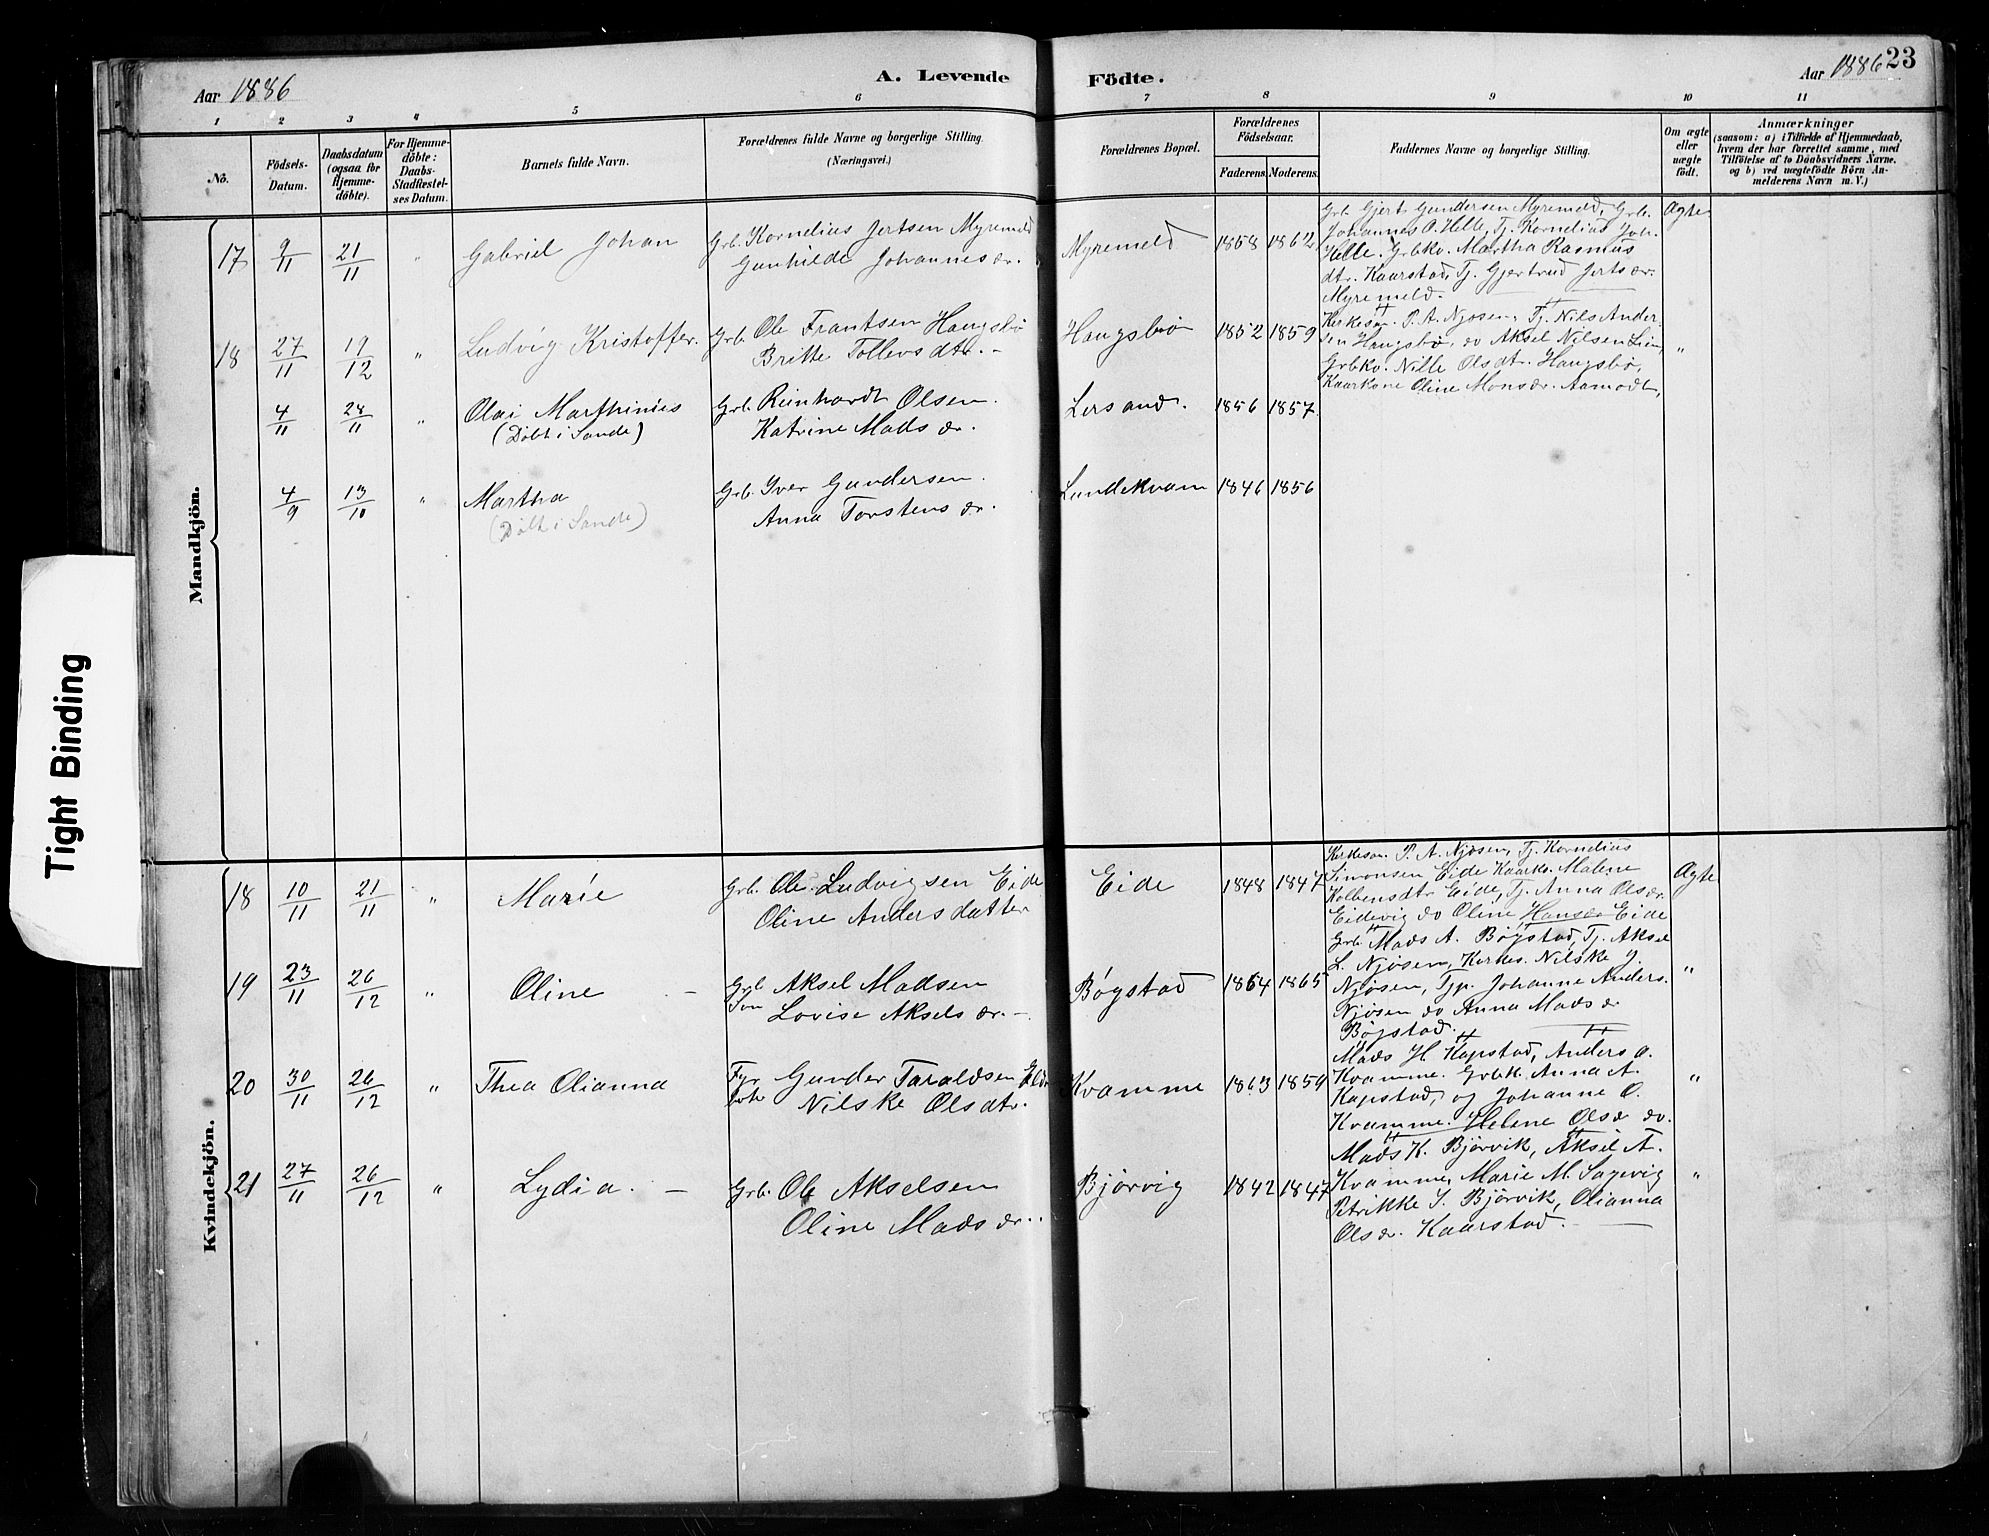 Aar 1886
A. Levende
Födte.
Aar 1886 23
1 2 3 4 5 6 7 8 9 10 11
No.
Födsels-Datum.
Daabsdatum (ogsaa for Hjemmedöbte).
For Hjemmedöbte: Daabs-Stadfæstelses Datum.
Barnets fulde Navn.
Forældrenes fulde Navne og borgerlige Stilling.
(Næringsvei.)
Forældrenes Bopæl.
Forældrenes Födselsaar.
Faderens. Moderens.
Faddernes Navne og borgerlige Stilling.
Om ægte eller uægte födt.
Anmærkninger
(saasom: a) i Tilfælde af Hjemmedaab,
hvem der har forrettet samme, med
Tilföielse af to Daabsvidners Navne.
og b) ved uægtefödte Börn Anmelderens Navn m. V.)
Mandkjön.
17 9/11 21/11 " Gabriel Johan
Grb. Kornelius Jertsen Myremeld
Gunhilde Johannesdr.
Myremeld 1858 1862
Grb. Gjert Gundersen Myremeld, Grb.
Johannes O. Helle, Tj. Kornelius Joh.
Helle. Grbko. Martha Rasmus
dtr. Kaarstad, Tj. Gjertrud Jertsdr.
Myremeld.
Ægte
18 27/11 19/12 " Ludvig Kristoffer.
Grb. Ole Frantsen Haugsbø
Britte Tollevsdtr. -
Haugsbø 1852 1859
Kirkesan. P. A. Njøsen, Tj. Nils Ander-
sen Haugsbø, do Aksel Nilsen Lien,
Grbko. Nille Olsdtr. Haugsbø,
Kaarkone Oline Monsdr. Aamodt,
"
4/11 28/11 " Olai Marthinus
(Döbt i Sande)
Grb. Reinhardt Olsen.
Katrine Madsdr.
Lersand. 1856 1857.
4/9 13/10 " Martha
(Döbt i Sande)
Grb. Iver Gundersen.
Anna Torstensdr.
Lundekvam 1846 1856
Tight Binding
Kvindekjön.
18 10/11 21/11 " Marie
Grb. Ole Ludvigsen Eide
Oline Andersdatter
Eide 1848 1847
Kirkesan. P. A. Njøsen, Tj. Kornelius
Simonsen Eide Kaarko. Malene
Kolbensdtr Eide, Tj. Anna Olsdr.
Eidevig do Oline Hansdr Eide
Ægte
19 23/11 26/12 " Oline -
Grb Aksel Madsen
Søn Lovise Akselsdr. -
Bøgstad 1864 1865
Grb. Mads A. Bøgstad, Tj. Aksel
L. Njøsen, Kirkes. Nilske J.
Njøsen, Tjp. Johanne Anders.
Njøsen do Anna Madsdr
Bøgstad.
"
20 30/11 26/12 " Thea Olianna
Gunder Taraldsen
Nilske Olsdtr.
Kvamme 1863 1859
Mads H. Kapstad, Anders A.
Kvamme. Grbk. Anna A.
Kapstad, og Johanne O.
Kvamme. Helene Olsdr do.
"
21 27/11 26/12 " Lydia. -
Grb. Ole Akselsen
Oline Madsdr..
Bjørvig 1842 1847
Mads K. Bjørvik, Aksel A.
Kvamme, Marie M. Sagevig
Petrikke S. Bjørvik, Olianna
Olsdr. Kaarstad.
"